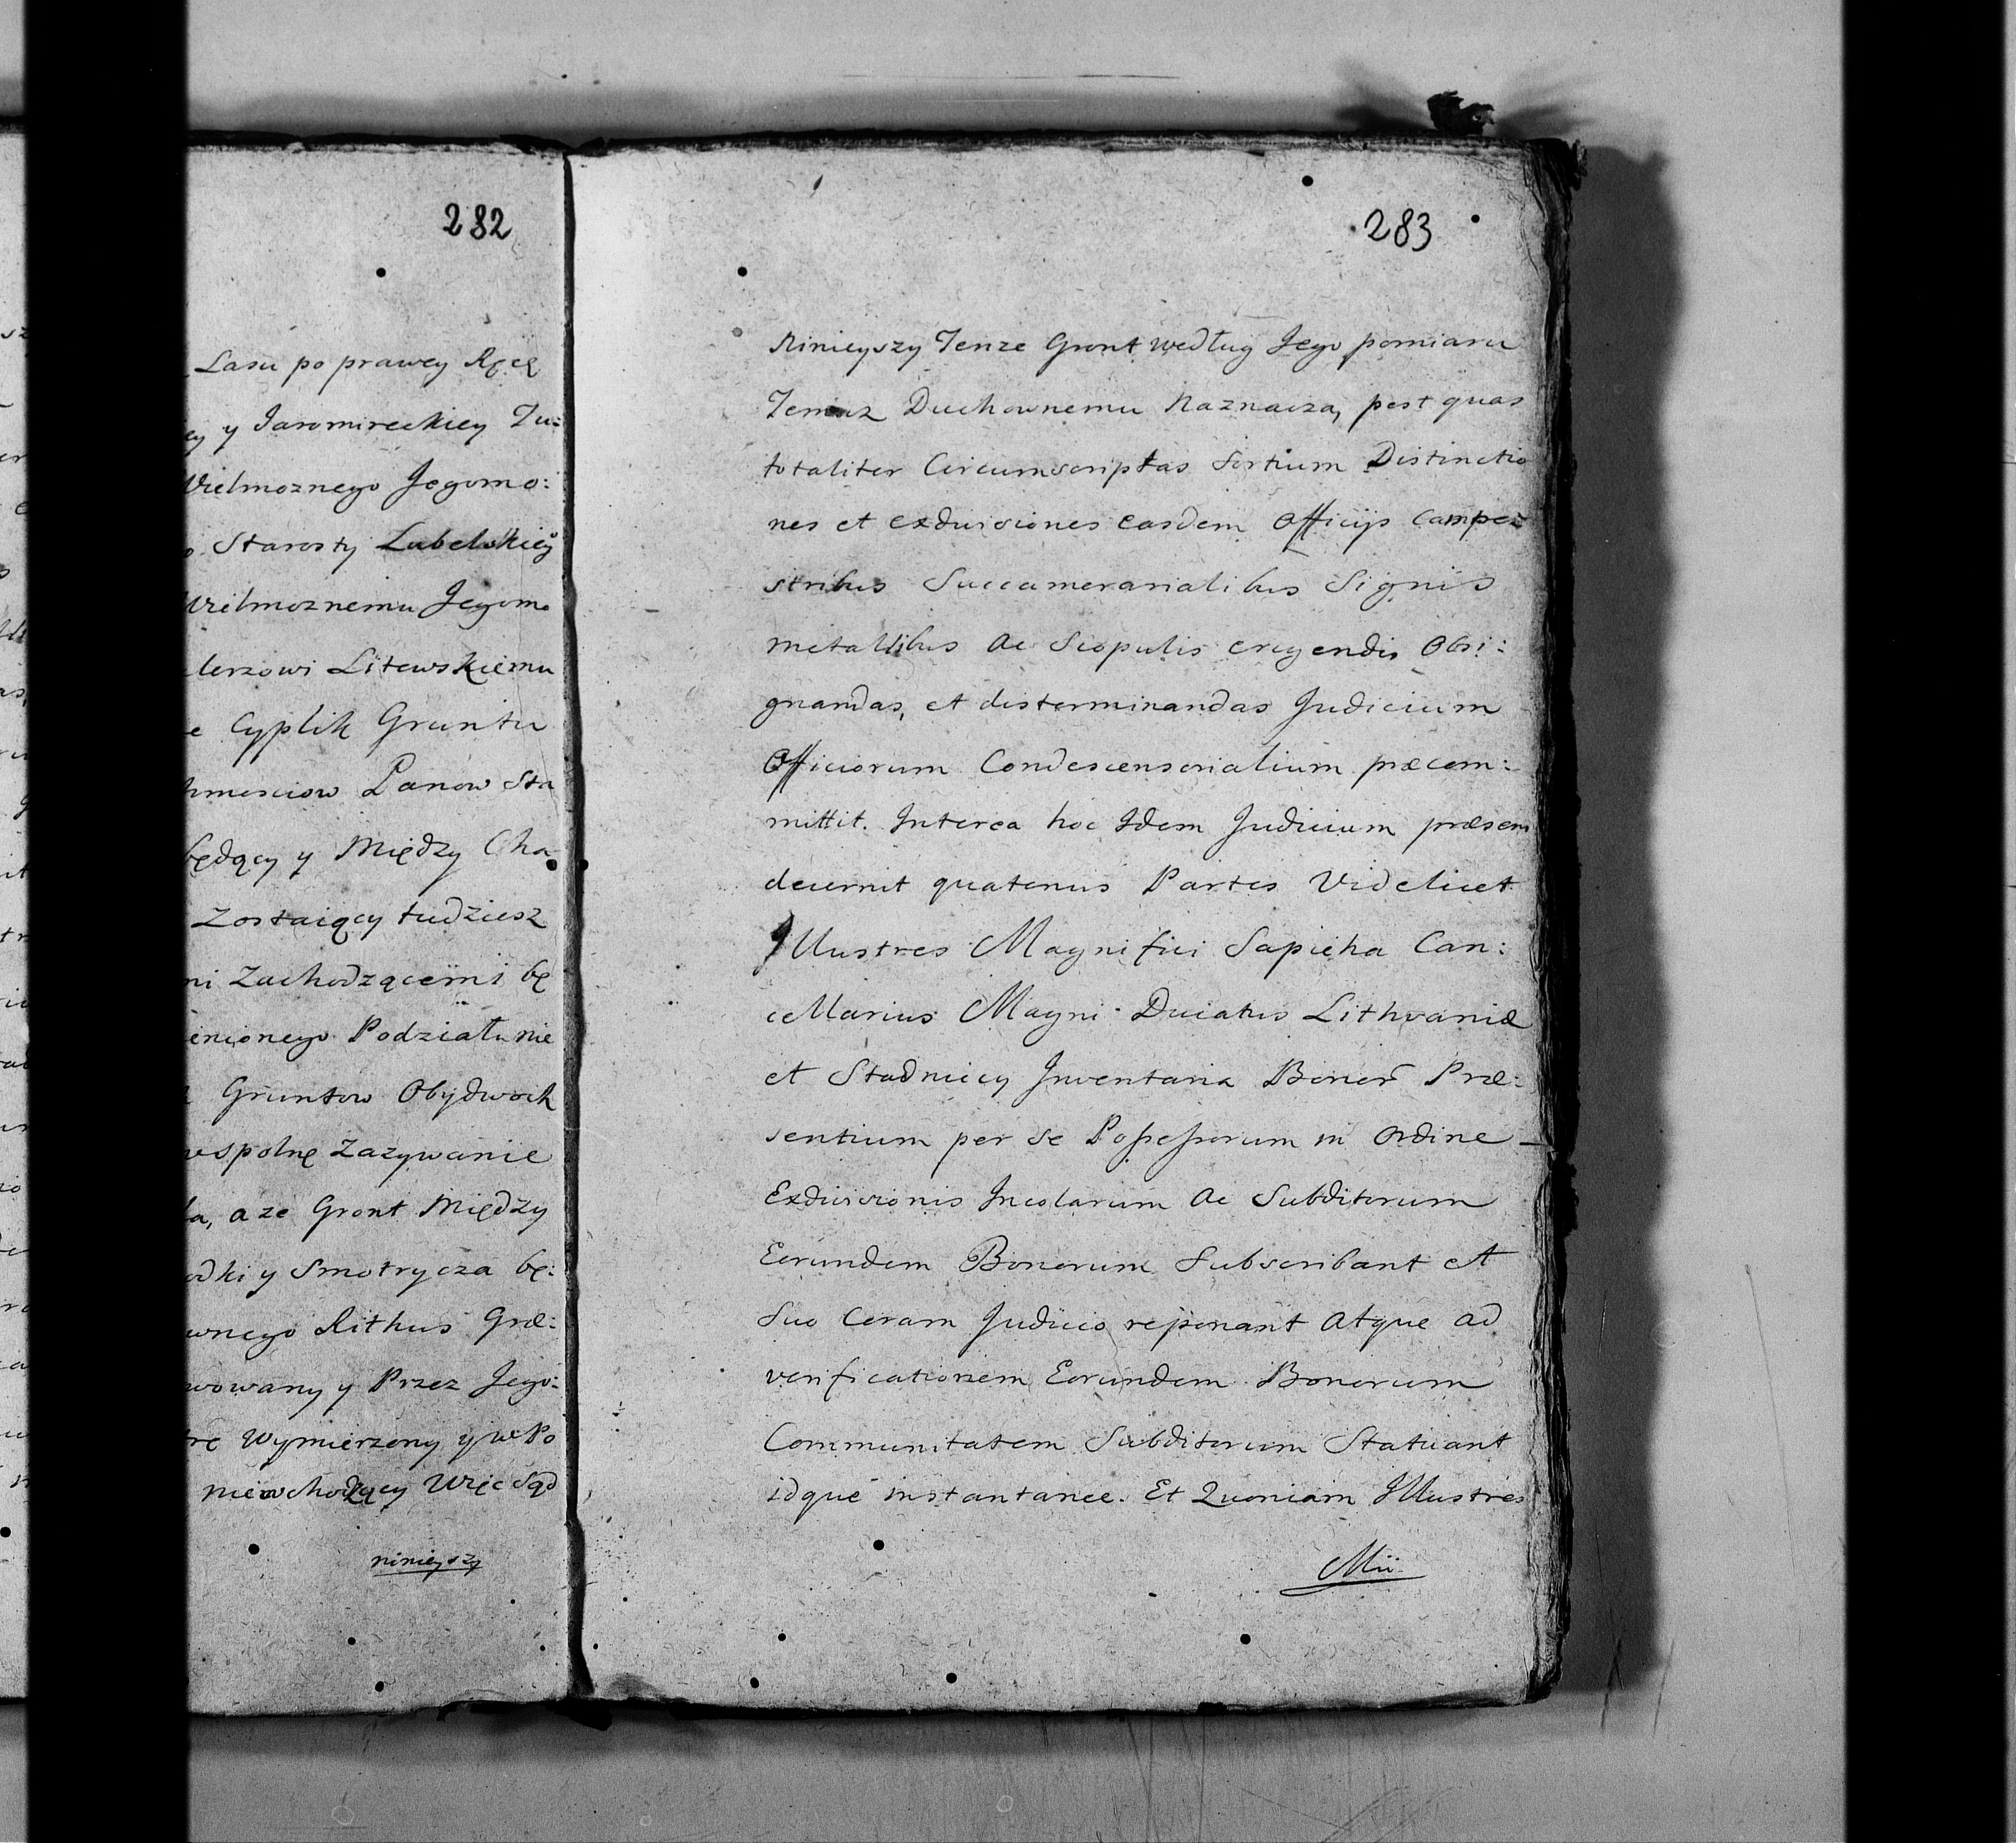 282
Lasu po prawey Ręcę
y Jaromireckiey Tu:
Wielmoznego Jegomo:
Starosty Lubelskiey
Wielmoznemu Jegomo
lerzowi Litewskiemu
e Cyplik Gruntu
hmosciow Panow Sta
będący y Między Cha
Zostaiący tudziesz
ni Zachodzącemi bę
enionego Podziału nie
Gruntow Obydwoch
wspolnę Zazywanie
la, a ze Gront Między
odki y Smotrycza bę:
wnego Rithus Græ:
wowany y Przez Jego:
trę Wymierzony y we Po
niewchodzący Więc Sąd
ninieyszy
283
Ninieyszy Tenze Gront według Jego pomiaru
Temuz Duchownemu Naznacza, post quas
totaliter Circumscriptas Sortium Distinctio
nes et exdivisiones easdem Officijs Campe:
stribus Succamerarialibus Signis
metallibus Ac Scopulis erigendis Obsi:
gnandas, et disterminandas Judicium
Officiorum Condescensorialium præcom:
mittit. Interea hoc Idem Judicium præsens
decernit quatenus Partes Videlicet
Illustres Magnifici Sapieha Can:
cellarius Magni Ducatus Lithvaniæ
et Stadnicy Inventaria Bonor Præ:
sentium per se Possessorum in Ordine
Exdivisionis Incolarum Ac Subditorum
Eorundem Bonorum Subscribant et
Suo Coram Judicio reponant Atque ad
verificationem Eorundem Bonorum
Communitatem Subditorum Statuant
idque instantanee. Et Quoniam Illustres
Mii